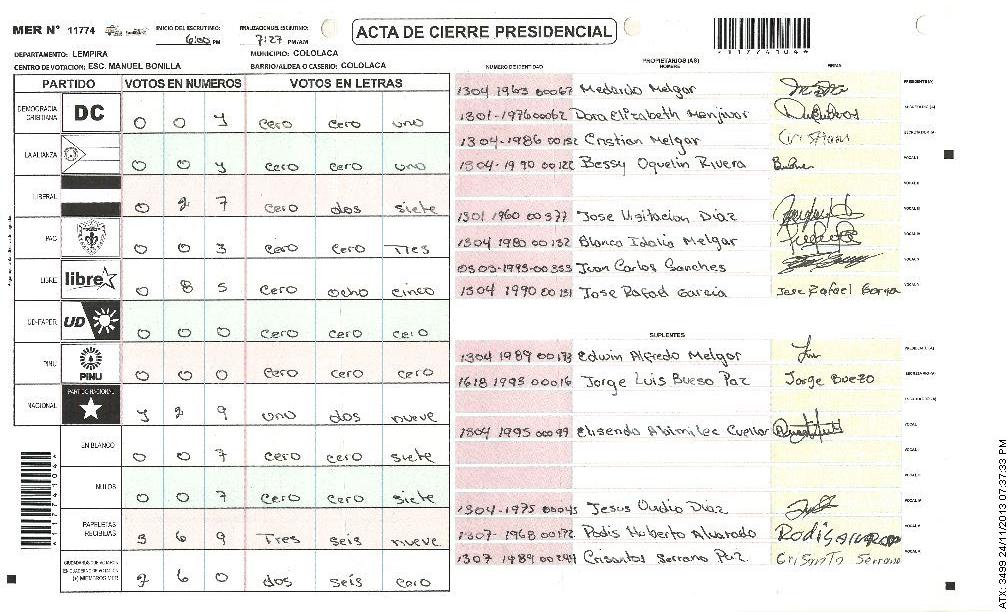 MER Nº 11774 INICIO DEL ESCRUTINIO: 6:00 PM FINALIZACION ESCRUTINIO: 7:27 PM/AM
ACTA DE CIERRE PRESIDENCIAL
DEPARTAMENTO: LEMPIRA MUNICIPIO: COLOLACA
CENTRO DE VOTACION: ESC. MANUEL BONILLA BARRIO/ALDEA O CASERIO: COLOLACA
PARTIDO VOTOS EN NUMEROS VOTOS EN LETRAS
DEMOCRACIA CRISTIANA DC 0 0 1 cero cero uno
LA ALIANZA 0 0 1 cero cero uno
LIBERAL 0 2 7 cero dos siete
PAC 0 0 3 cero cero Tres
LIBRE libre 0 8 5 cero ocho cinco
UD-FAPER UD 0 0 0 cero cero cero
PINU PINU 0 0 0 cero cero cero
NACIONAL PARTIDO NACIONAL 1 2 9 uno dos nueve
EN BLANCO 0 0 7 cero cero siete
NULOS 0 0 7 cero cero siete
PAPELETAS RECIBIDAS 3 6 9 Tres seis nueve
2 6 0 dos seis cero
NUMERO DE IDENTIDAD PROPIETARIOS (AS) NOMBRE FIRMA
1304 1963 00067 Medardo Melgar PRESIDENTE(A)
1301-1976 00062 Dora Elizabeth Menjivar SECRETARIO(A)
1304-1986 00152 Cristian Melgar Cristian
1304-1990 00122 Bessy Oquelin Rivera VOCAL I
VOCAL II
1301 1960 00377 Jose Visitacion Diaz VOCAL III
1304 1980 00132 Blanca Idalia Melgar VOCAL IV
0503-1995-00353 Juan Carlos Sanches VOCAL V
1304 1990 00151 Jose Rafael Garcia Jose Rafael Garcia
SUPLENTES
1304 1989 00173 Edwin Alfredo Melgar PRESIDENTE(A)
1618 1995 00016 Jorge Luis Bueso Paz Jorge Buezo SECRETARIO(A)
1304 1995 00099 Elisendo Abimilec Cuellar VOCAL I
1304-1975 00045 Jesus Ovidio Diaz
1307-1968 00172 Rodis Huberto Alvarado Rodis Alvarado
1307 1989 00244 Crisantos Serrano Paz Crisanto Serrano
11774104
ATX: 3499 24/11/2013 07:37:33 PM